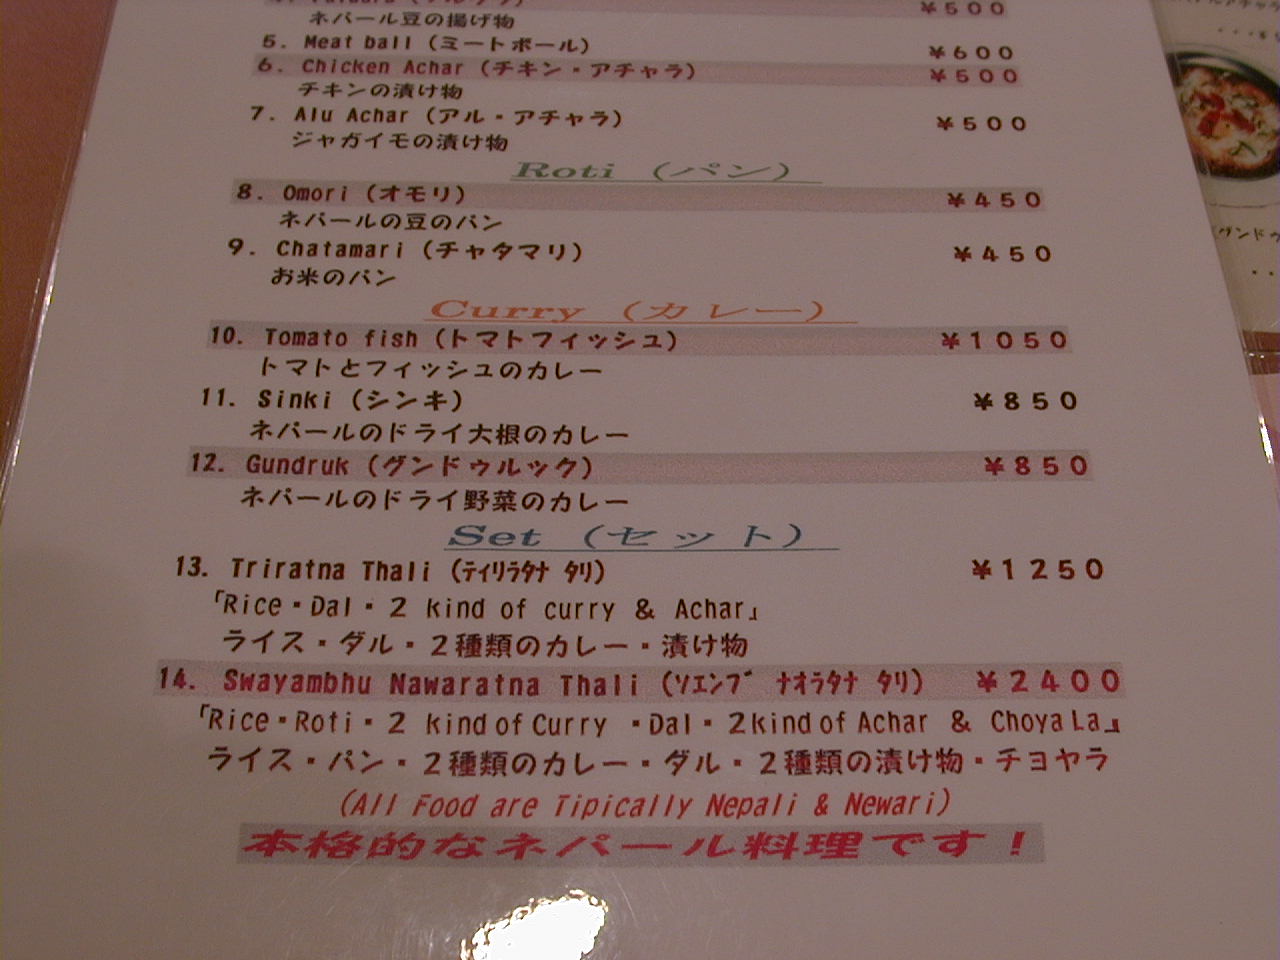 ¥500
ネパール豆の揚げ物
5. Meat ball (ミートボール) ¥600
6. Chicken Achar (チキン・アチャラ) ¥500
チキンの漬け物
7. Alu Achar (アル・アチャラ) ¥500
ジャガイモの漬け物
Roti (パン)
8. Omori (オモリ) ¥450
ネパールの豆のパン
9. Chatamari (チャタマリ) ¥450
お米のパン
Curry (カレー)
10. Tomato fish (トマトフィッシュ) ¥1050
トマトとフィッシュのカレー
11. Sinki (シンキ) ¥850
ネパールのドライ大根のカレー
12. Gundruk (グンドゥルック) ¥850
ネパールのドライ野菜のカレー
Set (セット)
13. Triratna Thali (ティリラタナ タリ) ¥1250
「Rice・Dal・2 kind of curry & Achar」
ライス・ダル・2種類のカレー・漬け物
14. Swayambhu Nawaratna Thali (ソエンブ ナオラタナ タリ) ¥2400
「Rice・Roti・2 kind of Curry ・Dal・2kind of Achar & Choya La」
ライス・パン・2種類のカレー・ダル・2種類の漬け物・チョヤラ
(All Food are Tipically Nepali & Newari)
本格的なネパール料理です!